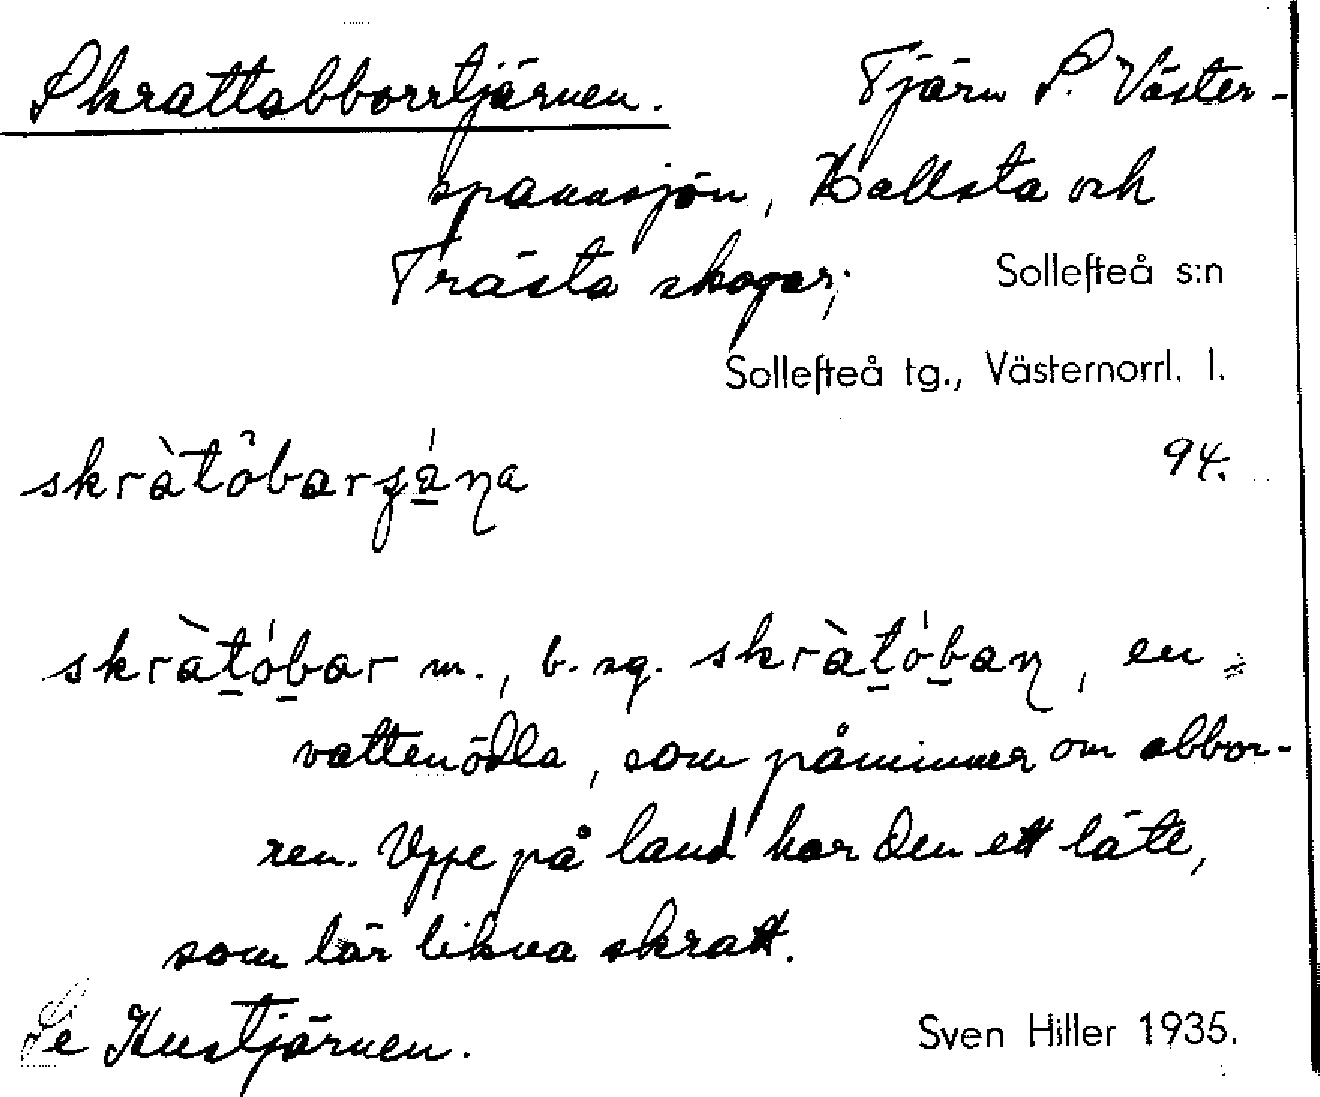 Skrattabborrtjärnen. Tjärn S. Väster-
spannsjön, Hallsta och
Trästa skogar;
Sollefteå s:n
Sollefteå tg., Västernorrl. l.
94.
skràtôbarʂá̱ɳa
skràṯóḇar m., b. sg. skràṯóḇaɳ, en
vattenödla, som påminner om abbor-
ren. Uppe på land har den ett läte,
som lär likna skratt.
Se Hustjärnen.
Sven Hiller 1935.